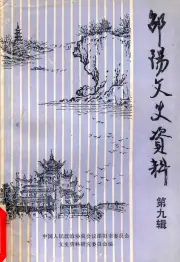 邵阳文史资料
第九辑
中国人民政治协商会议邵阳市委员会
文史资料研究委员会编